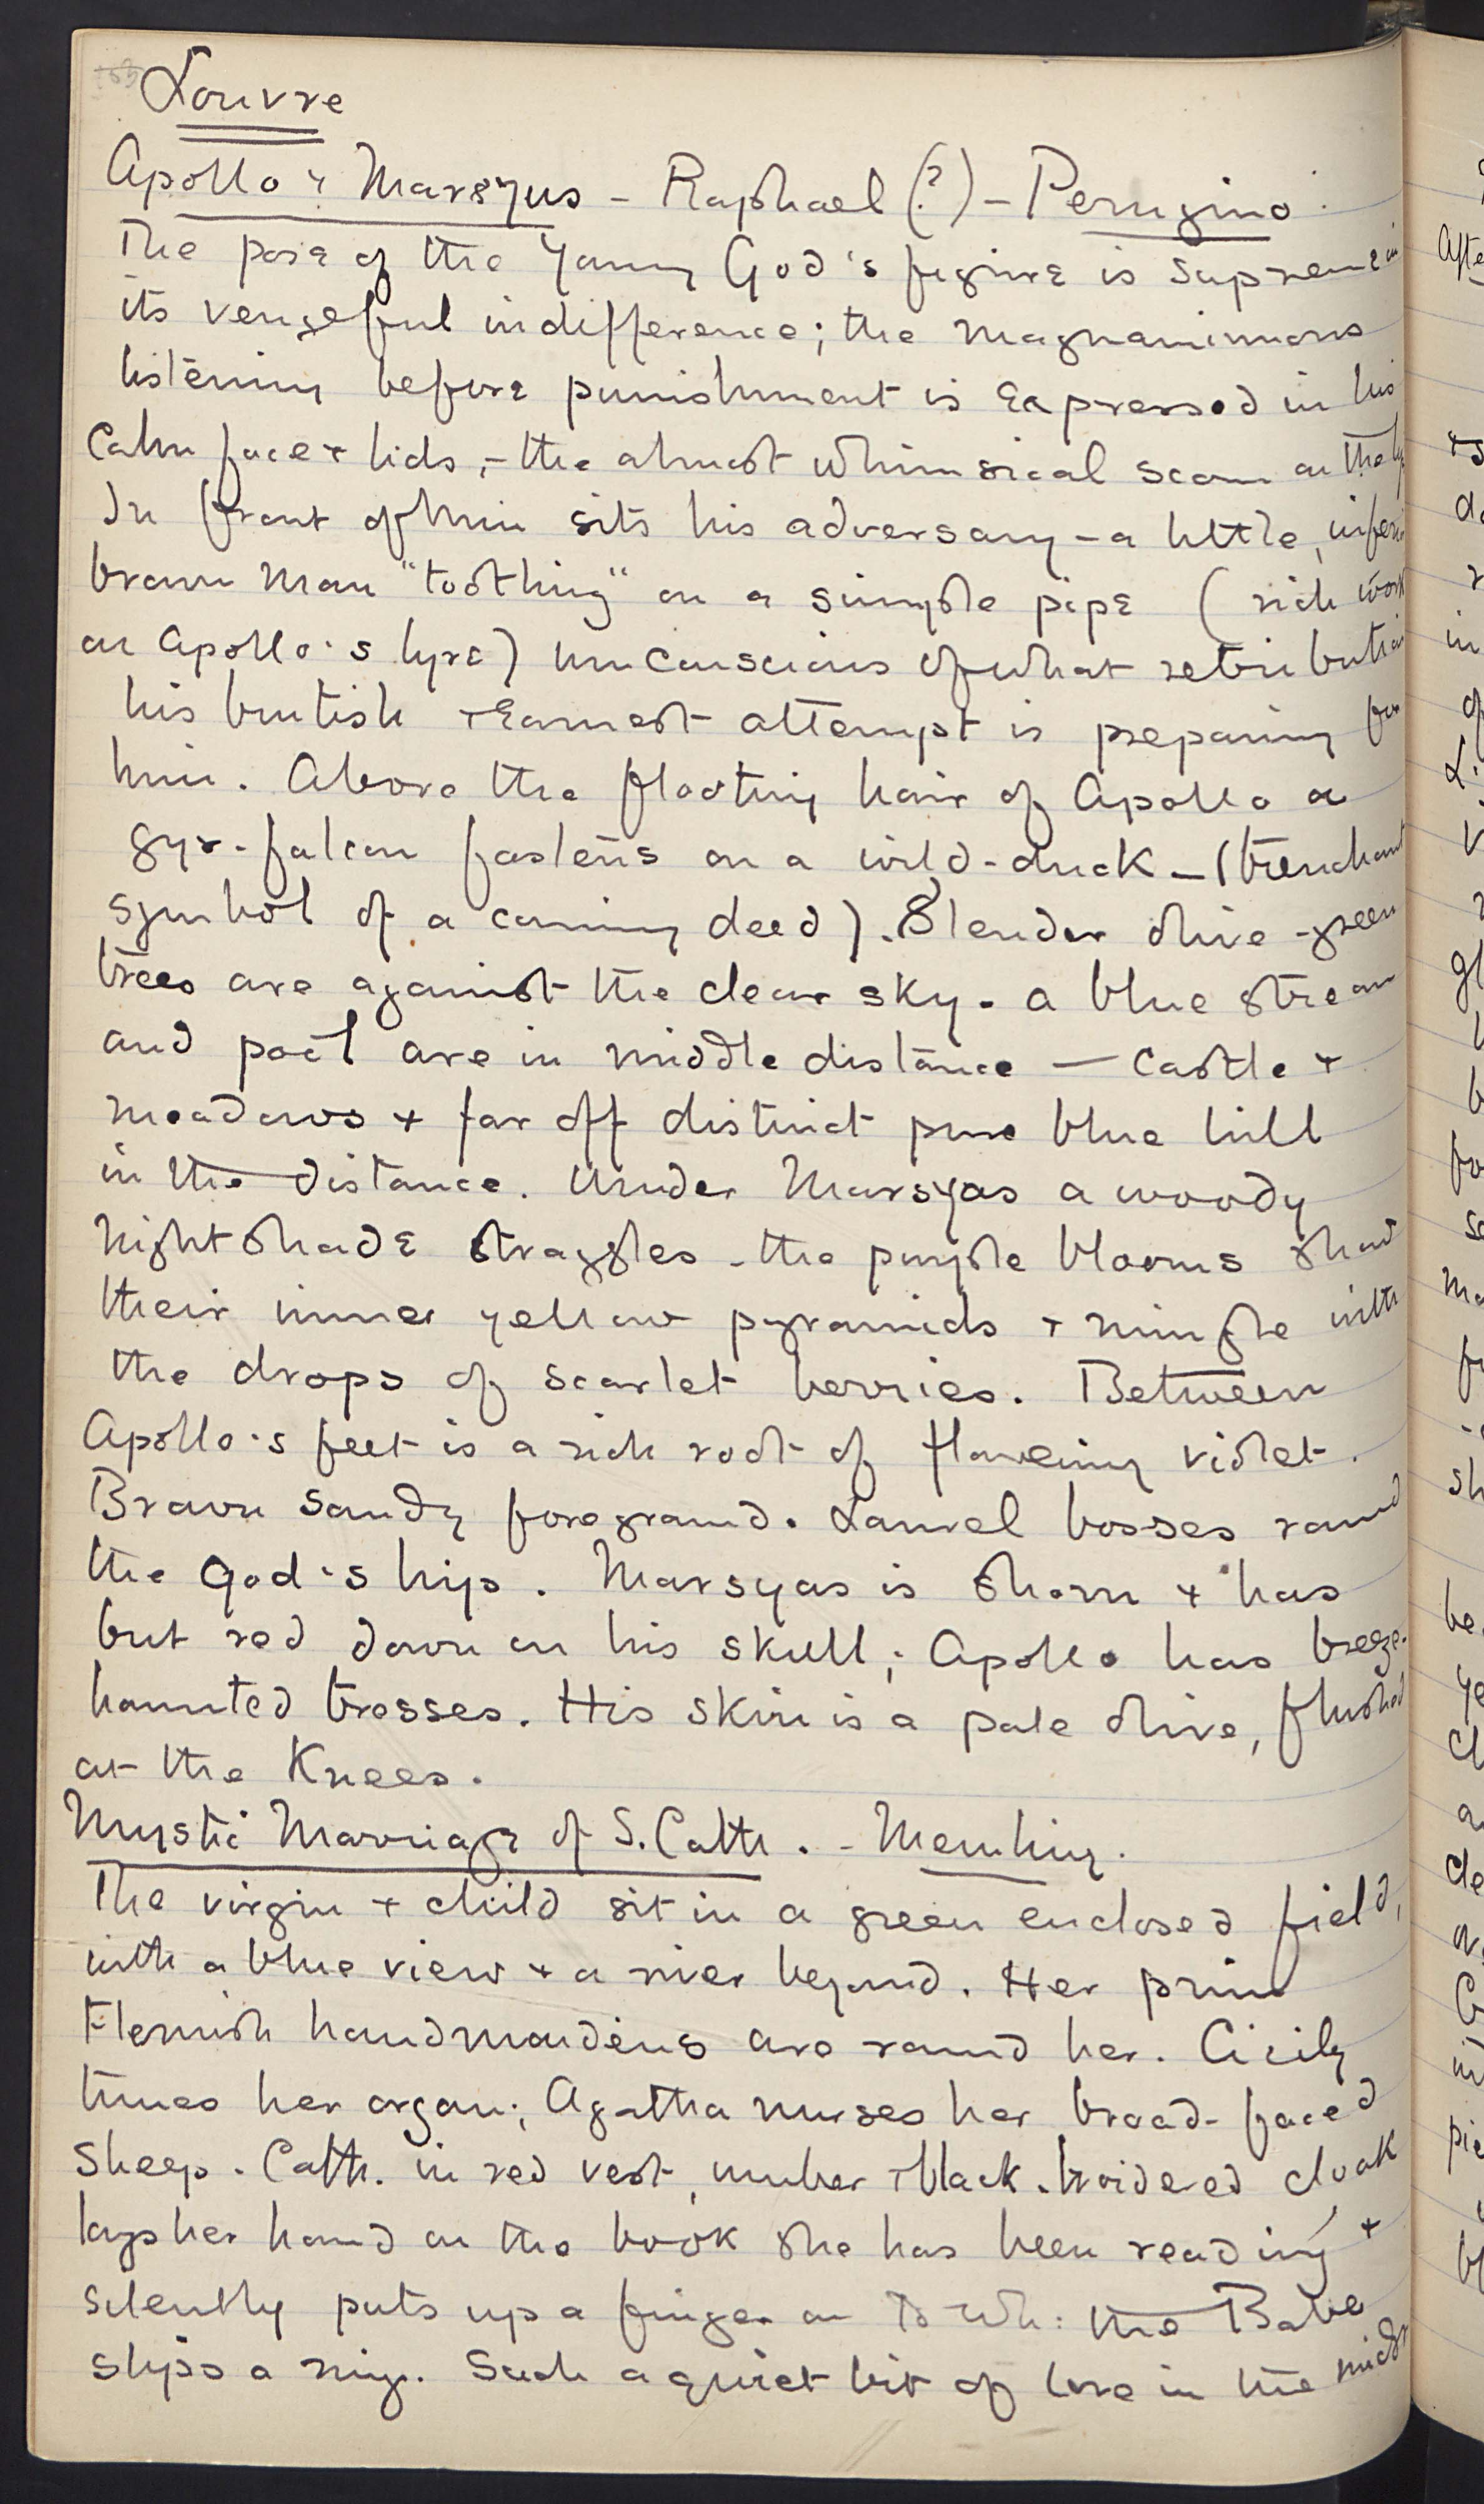 Louvre
Apollo & Marsyus - Raphael (?) - Perugino.
The pose of the Young God's figure is supreme in
its vengeful indifference; the magnanimous
listening before punishment is Expressed in his
calm face & lids, - the almost whimsical scorn on the lip
In front of him sits his adversary - a little, inferior
brown man "toothing" on a simple pipe (rich work
on Apollo's lyre) unconscious of what retribution
his brutish & Earnest attempt is preparing for
him. Above the floating hair of Apollo a
gyr-falcon fastens on a wild-duck - (trenchant
symbol of a coming deed). Slender olive-green
trees are against the clear sky. a blue stream
and pool are in middle distance — Castle &
meadows & far off distinct pure blue hill
in the distance. Under Marsyas a woody
Nightshade straggles - the purple blooms show
their inner yellow pyramids & mingle with
the drops of scarlet berries. Between
Apollo's feet is a rich root of flowering violet.
Brown sandy foreground. Laurel bosses round
the God's hips. Marsyas is shorn & has
but red down on his skull; Apollo has breeze-
haunted tresses. His skin is a pale olive, flushed
at the Knees.
Mystic Marriage of S. Cath. - Memling.
The virgin & child sit in a green enclosed field,
with a blue view & a river beyond. Her prim
Flemish handmaidens are round her. Cicily
tunes her organ; Agatha nurses her broad-faced
sheep. Cath. in red vest, umber & black-broidered cloak
lays her hand on the book she has been reading &
silently puts up a finger on to wh: the Babe
slips a ring. Such a quiet bit of love in the midst
Afte